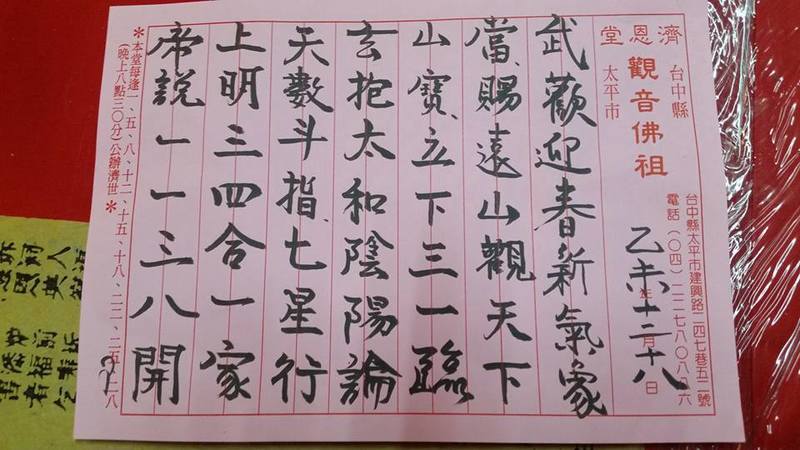 濟恩堂
台中縣太平市建興路二四七巷五二號
電話(〇四)二二七八〇八五六
乙未年十二月十八日
台中縣
觀音佛祖
太平市
武歡迎春新氣象
當賜遠山觀天下
山寶立下三一臨
玄抱太和陰陽論
天數斗指七星行
上明三四合一家
帝說一一三八開
＊本堂每逢一、五、八、十二、十五、十八、二二、二五、二八
(晚上八點三〇分)公辦濟世＊